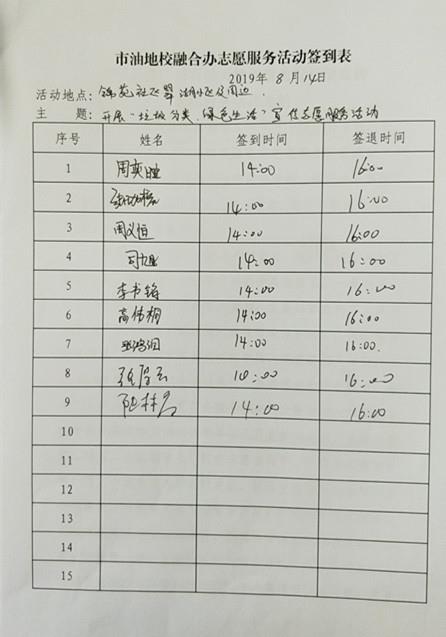 市油地校融合办志愿服务活动签到表
2019年 8月14日
活动地点：锦苑社区翠湖小区及周边
主 题：开展“垃圾分类、绿色生活”宣传志愿服务活动
序号 姓名 签到时间 签退时间
1 周奕瞳 14:00 16:00
2 14:00 16:00
3 周义恒 14:00 16:00
4 14:00 16:00
5 李书锦 14:00 16:00
6 高伟桐 14:00 16:00
7 14:00 16:00.
8 16:00
9 14:00 16:00
10
11
12
13
14
15